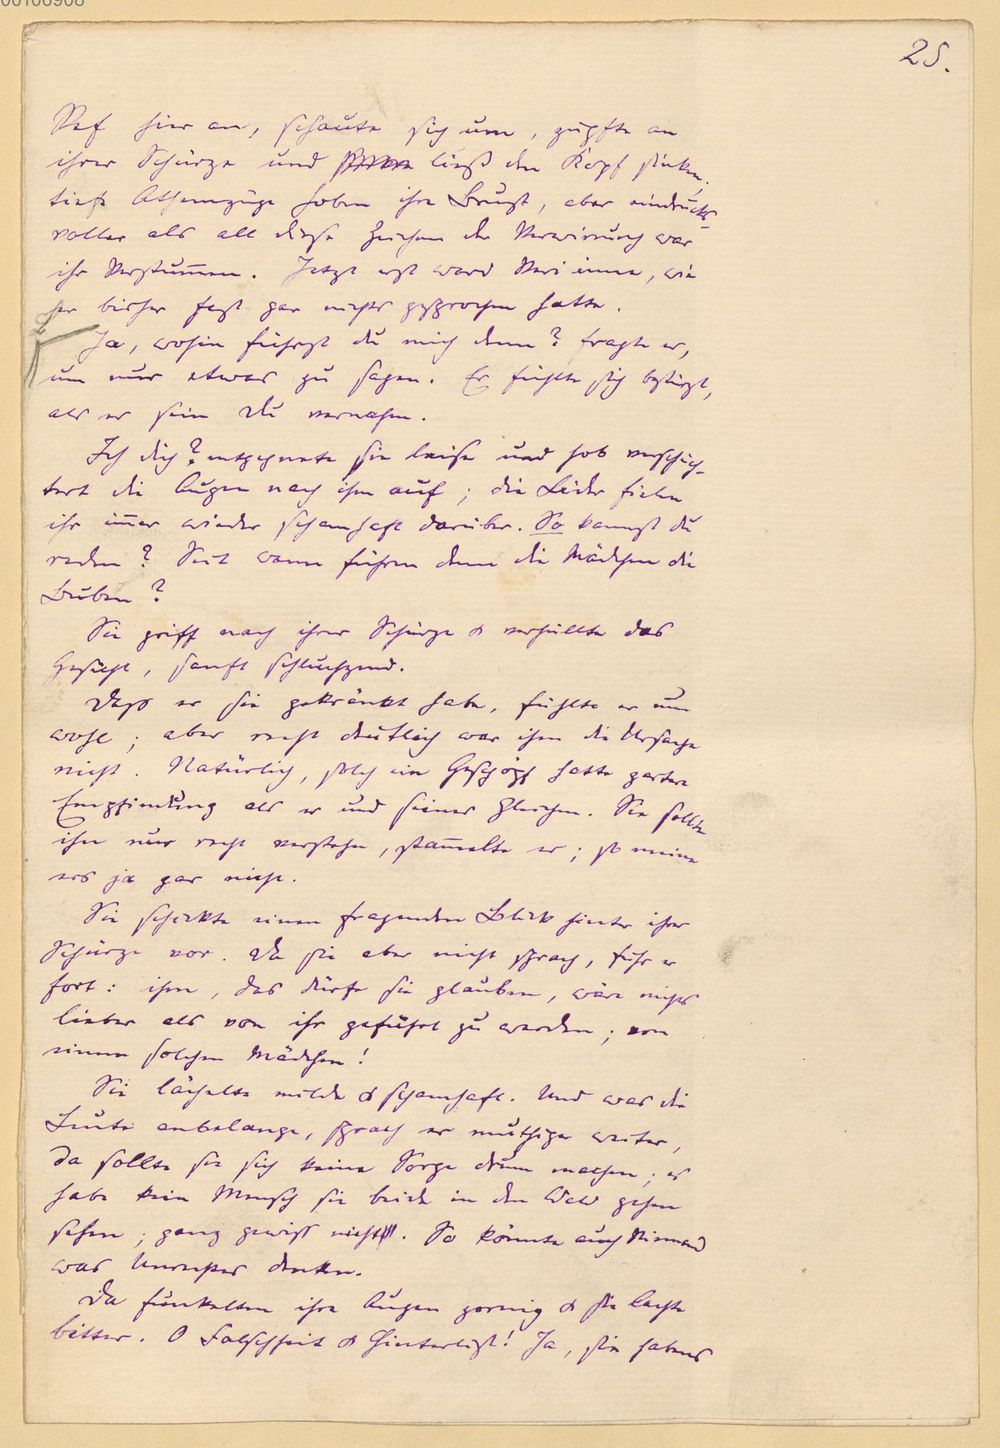 00106908
25.
Ref hier an, schaute sich um, zupfte an
ihrer Schürze und ließ den Kopf sinken,
tiefe Athemzüge hoben ihre Brust, aber eindrucks-
voller als all diese Zeichen der Verwirrung war
ihr Verstummen. Jetzt erst ward Veri inne, wie
er bisher fast gar nichts gesprochen hatte.
Ja, wohin führst du mich denn? fragte er,
um nur etwas zu sagen. Er fühlte sich bestürzt,
als er sein Du vernahm.
Ich dich? entgegnete sie leise und hob verschüch-
tert die Augen nach ihm auf; die Lider fielen
ihr im̅er wieder schamhaft darüber. So kannst du
reden? Seit wann führen denn die Mädchen die
Buben?
Sie griff nach ihrer Schürze & verhüllte das
Gesicht, sanft schluchzend.
Dass er sie gekränkt habe, fühlte er nun
wohl; aber recht deutlich war ihm die Ursache
nicht. Natürlich, solch ein Geschöpf hatte zartere
Empfindung als er und seines Gleichen. Sie sollte
ihn nur recht verstehen, stam̅elte er; so meine
ers ja gar nicht.
Sie schickte einen fragenden Blick hinter ihrer
Schürze vor. Da sie aber nicht sprach, fuhr er
fort: ihm, das dürfe sie glauben, wäre nichts
lieber als von ihr geführt zu werden; von
einem solchen Mädchen!
Sie lächelte milde & schamhaft. Und was die
Leute anbelange, sprach er muthiger weiter,
da sollte sie sich keine Sorge drum machen; es
habe kein Mensch sie beide in den Wald gehen
sehen; ganz gewiss nicht. So könnte auch Niemand
was Unrechtes denken.
Da funkelten ihre Augen zornig & sie lachte
bitter. O Falschheit & Hinterlist! Ja, sie habens